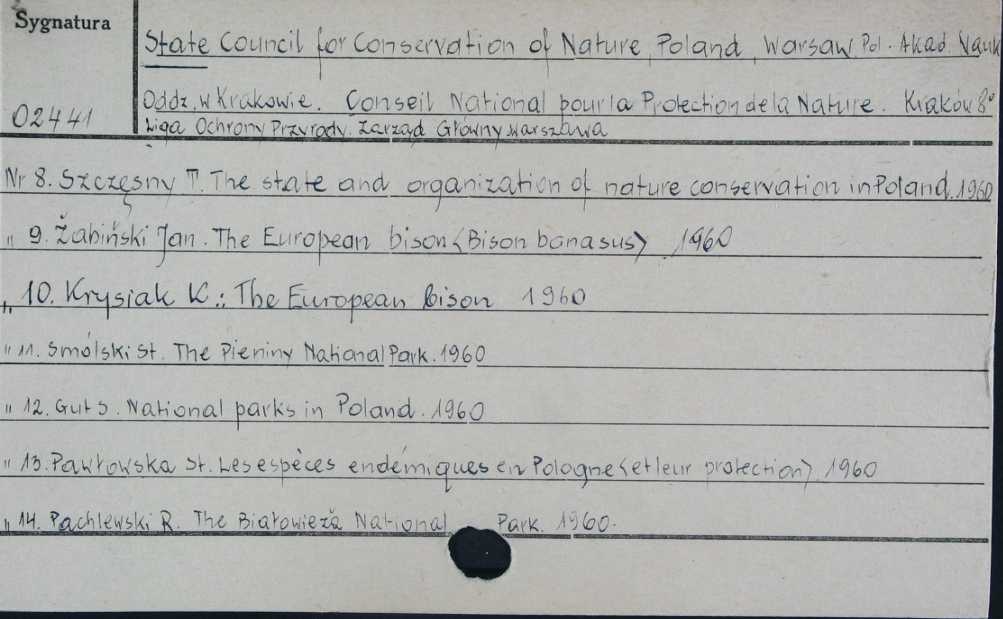 Sygnatura
State Council for Conservation of Nature, Poland, Warsaw, Pol. Akad. Nauk
Oddz. w Krakowie. Conseil National pour la Protection de la Nature. Kraków 8°
02441
Liga Ochrony Przyrody. Zarząd Główny Warszawa
Nr 8. Szczęsny T. The state and organization of nature conservation in Poland. 1960
" 9. Żabiński Jan. The European bison <Bison bonasus> 1960
" 10. Krysiak K.: The European bison 1960
" 11. Smólski St. The Pieniny National Park. 1960
" 12. Gut S. National parks in Poland. 1960
" 13. Pawłowska St. Les espèces endémiques en Pologne <et leur protection>. 1960
" 14. Pachlewski R. The Białowieża National Park. 1960.